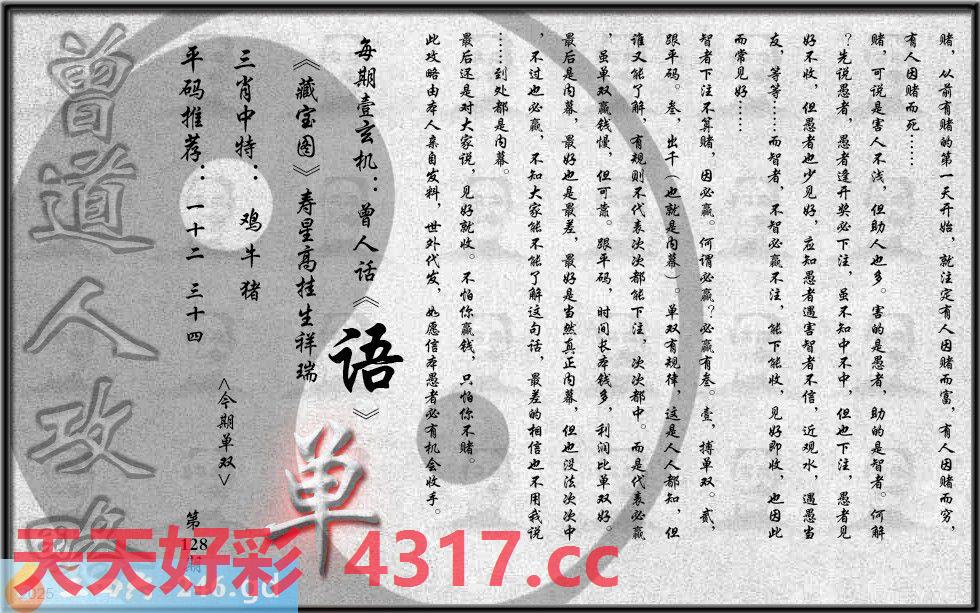 赌，从前有赌的第一天开始，就注定有人因赌而富，有人因赌而穷，
有人因赌而死……
赌，可说是害人不浅，但助人也多。害的是愚者，助的是智者。何解
？先说愚者，愚者逢开奖必下注，虽不知中不中，但也下注，愚者见
好不收，但愚者也少见好，应知愚者遇害智者不信，近观水，遇愚当
友，等等……而智者，不智必赢不注，能下能收，见好即收，也因此
而常见好……
智者下注不算赌，因必赢。何谓必赢？必赢有叁。壹，搏单双。贰，
跟平码。叁，出千（也就是内幕）。单双有规律，这是人人都知，但
谁又能了解，有规则不代表次次都能下注，次次都中。而是代表必赢
，虽单双赢钱慢，但可靠。跟平码，时间长本钱多，利润比单双好。
最后是内幕，最好也是最差，最好是当然真正内幕，但也没法次次中
，不过也必赢，不知大家能不能了解这句话，最差的相信也不用我说
……到处都是内幕。
最后还是对大家说，见好就收。不怕你赢钱，只怕你不赌。
此攻略由本人亲自发料，世外代发，如愿信本愚者必有机会收手。
每期壹玄机：曾人话《语》
《藏宝图》寿星高挂生祥瑞
单
三肖中特：鸡牛猪
<今期单双>
平码推荐：一十二 三十四
第128期
曾道人攻略
天天好彩 4317.cc
2025